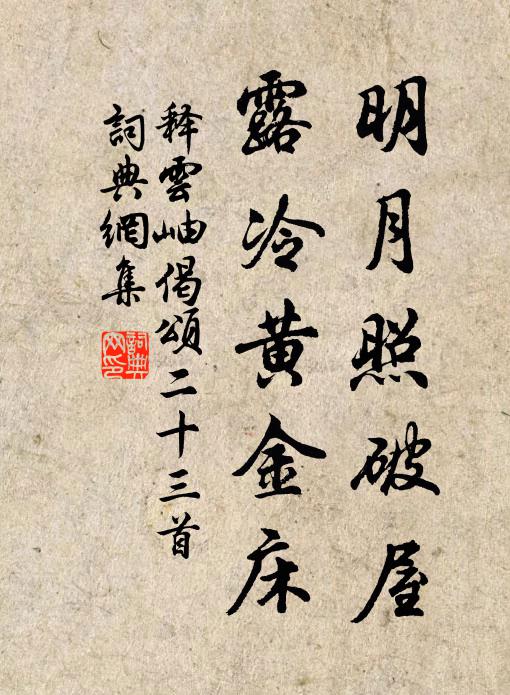 明月照破屋
露冷黄金床
释雲岫偈頌二十三首
詞典網集
詞典网印